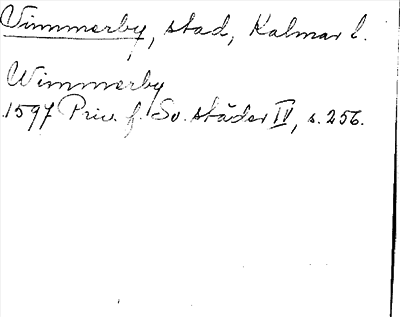 Vimmerby, stad, Kalmar l.
Wimmerby
1597 Priv. f. Sv. städer IV, s. 256.